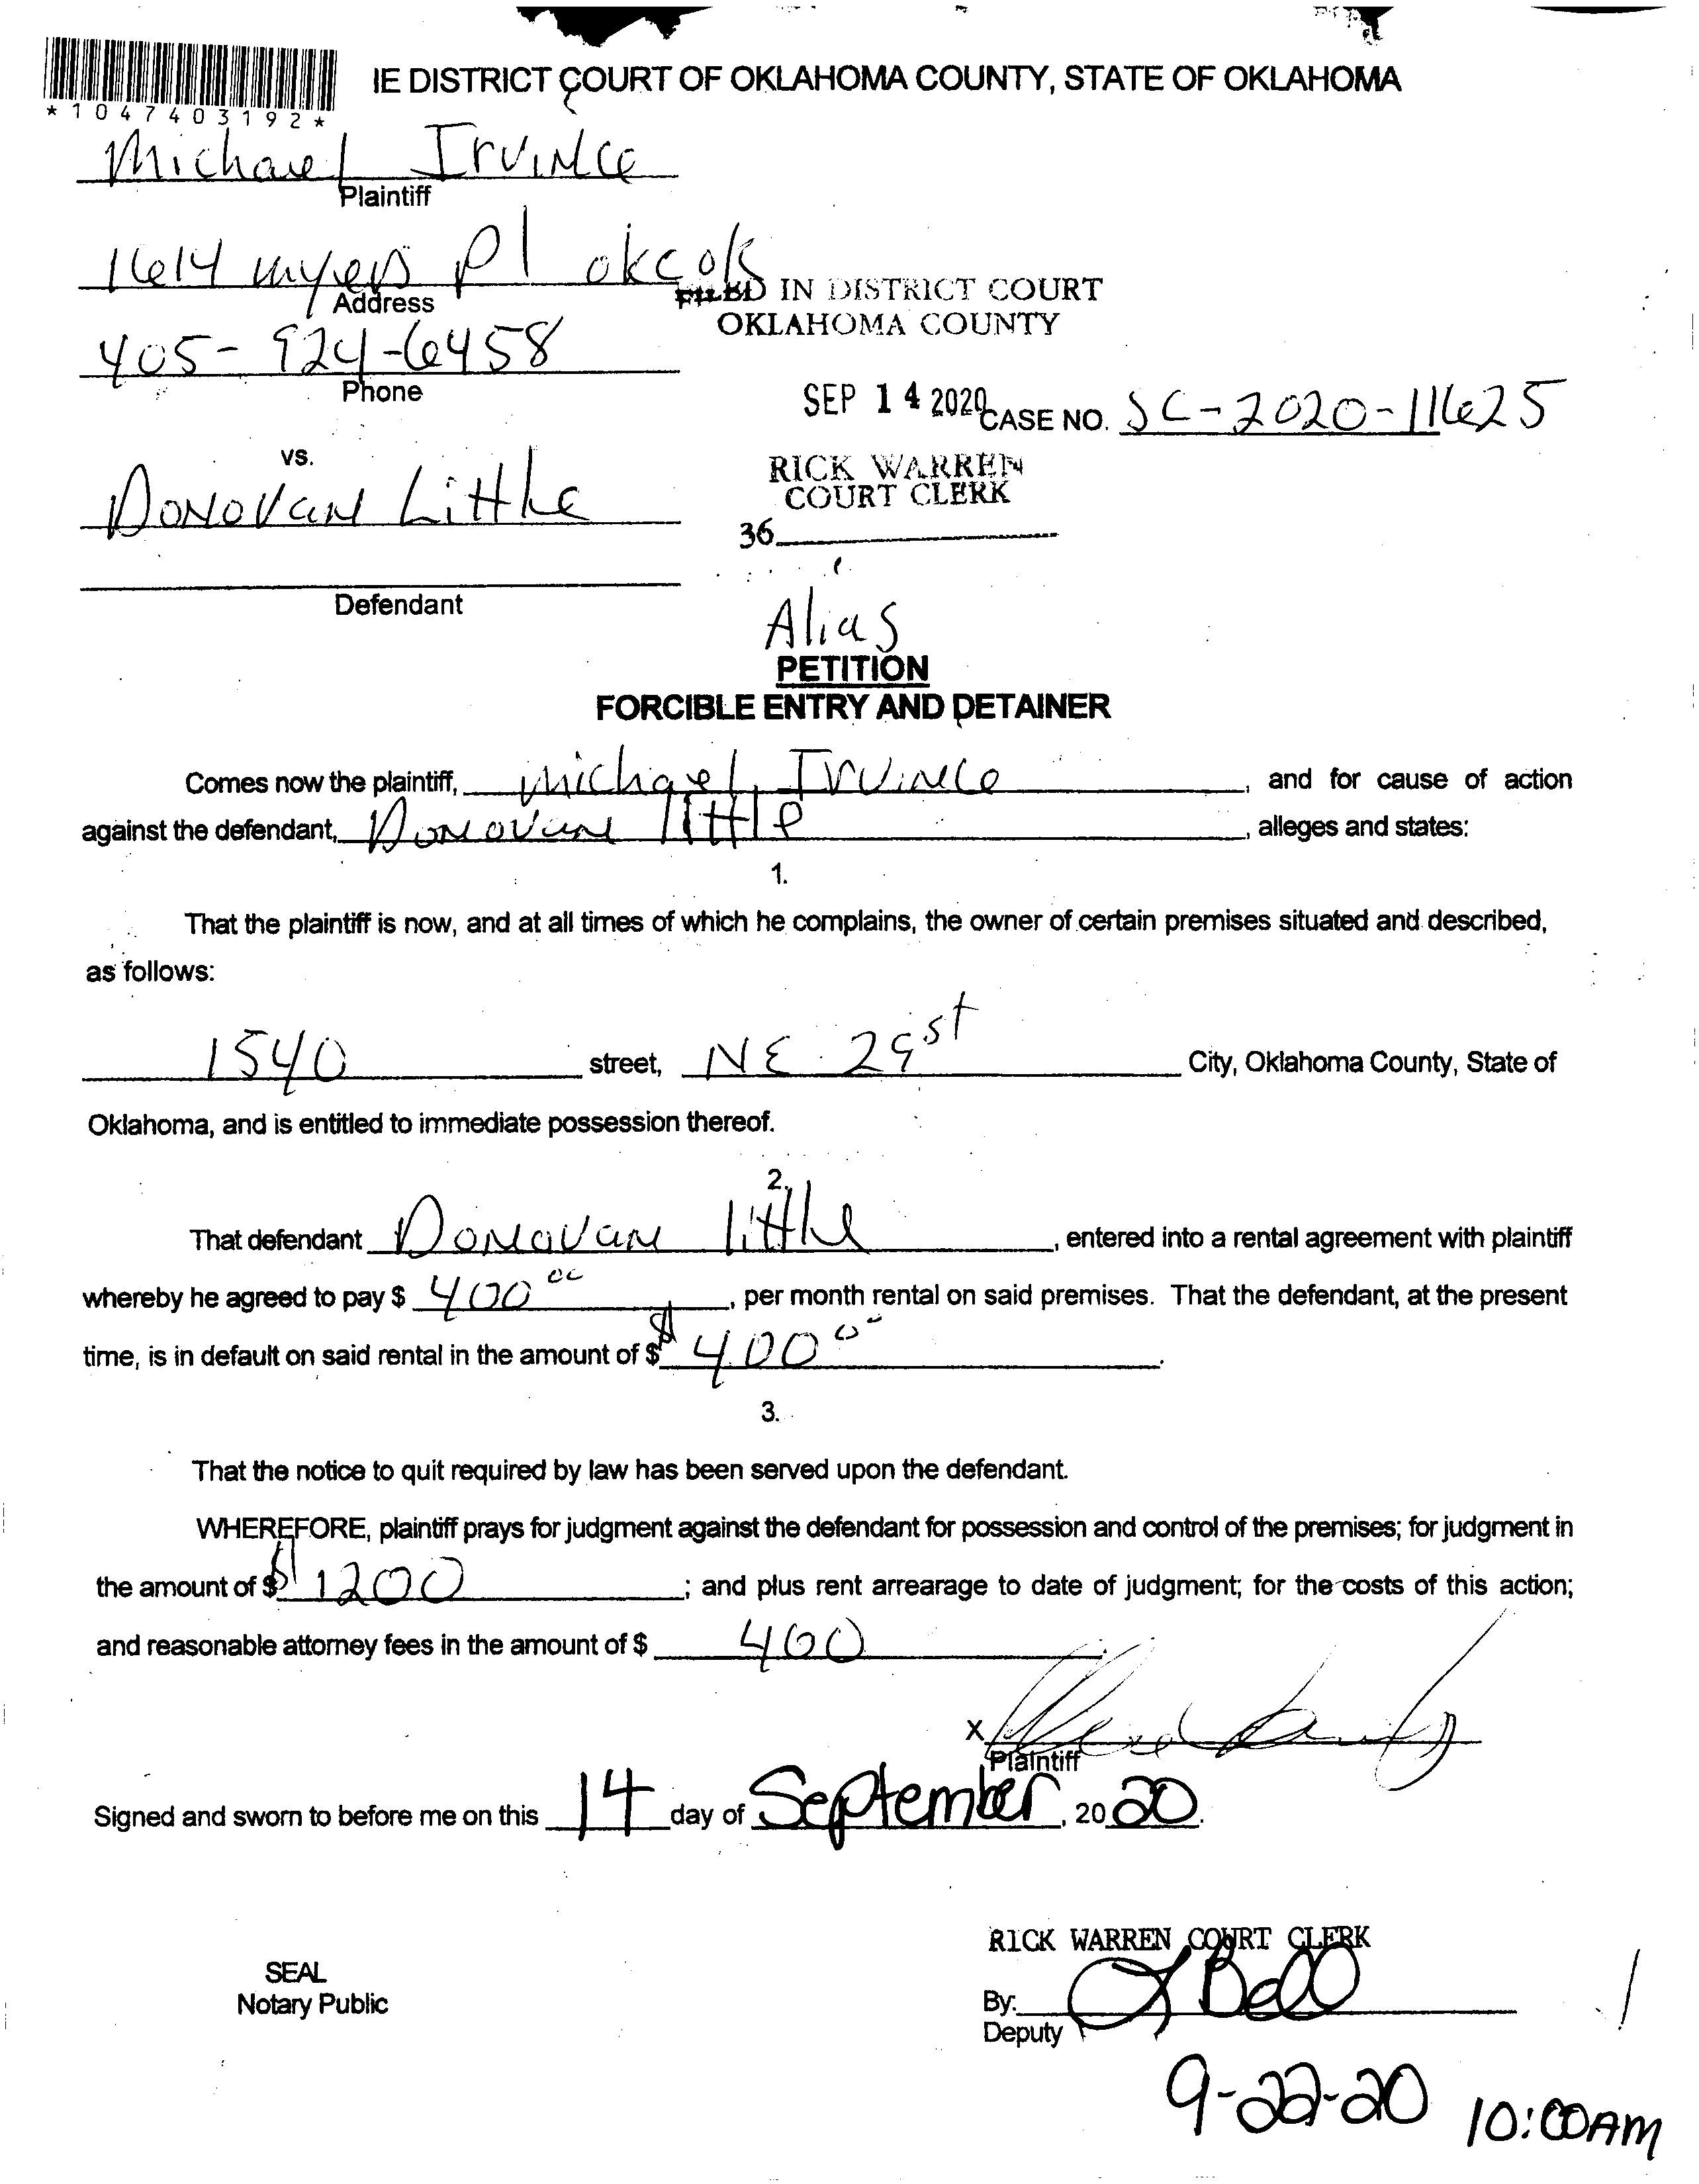 IE DISTRICT COURT OF OKLAHOMA COUNTY, STATE OF OKLAHOMA
*1047403192*
Michael Irvince
Plaintiff
1614 myers Pl okc ok
Address
FILED IN DISTRICT COURT
OKLAHOMA COUNTY
405-924-6458
Phone
SEP 14 2020
CASE NO. SC-2020-11625
vs.
RICK WARREN
COURT CLERK
Donovan Little
36
Defendant
Alias
PETITION
FORCIBLE ENTRY AND DETAINER
Comes now the plaintiff, michael Irvince, and for cause of action
against the defendant, Donovan little, alleges and states:
1.
That the plaintiff is now, and at all times of which he complains, the owner of certain premises situated and described,
as follows:
1540 street, NE 29st City, Oklahoma County, State of
Oklahoma, and is entitled to immediate possession thereof.
2.
That defendant Donovan little, entered into a rental agreement with plaintiff
whereby he agreed to pay $ 400 00, per month rental on said premises. That the defendant, at the present
time, is in default on said rental in the amount of $ $400 00.
3.
That the notice to quit required by law has been served upon the defendant.
WHEREFORE, plaintiff prays for judgment against the defendant for possession and control of the premises; for judgment in
the amount of $ $1200; and plus rent arrearage to date of judgment; for the costs of this action;
and reasonable attorney fees in the amount of $ 400.
X
Plaintiff
Signed and sworn to before me on this 14 day of September, 2020.
RICK WARREN COURT CLERK
SEAL
Notary Public
By: L Bell
Deputy
9-22-20 10:00AM